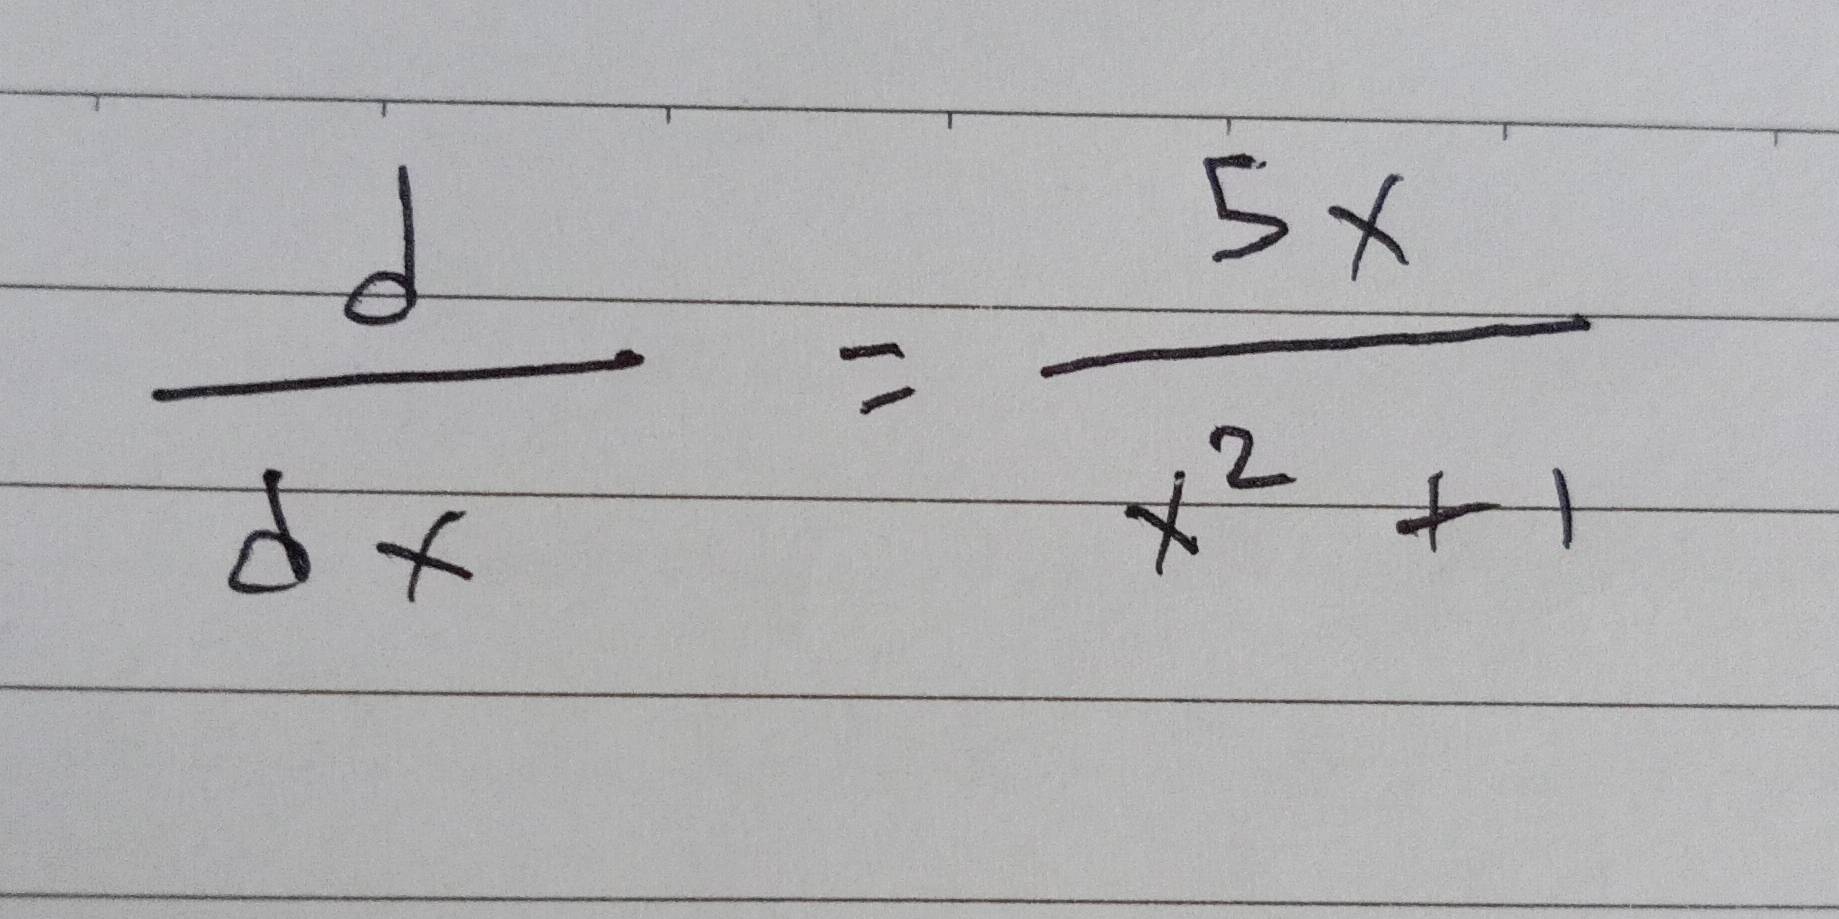 d/dx = 5x/x² + 1